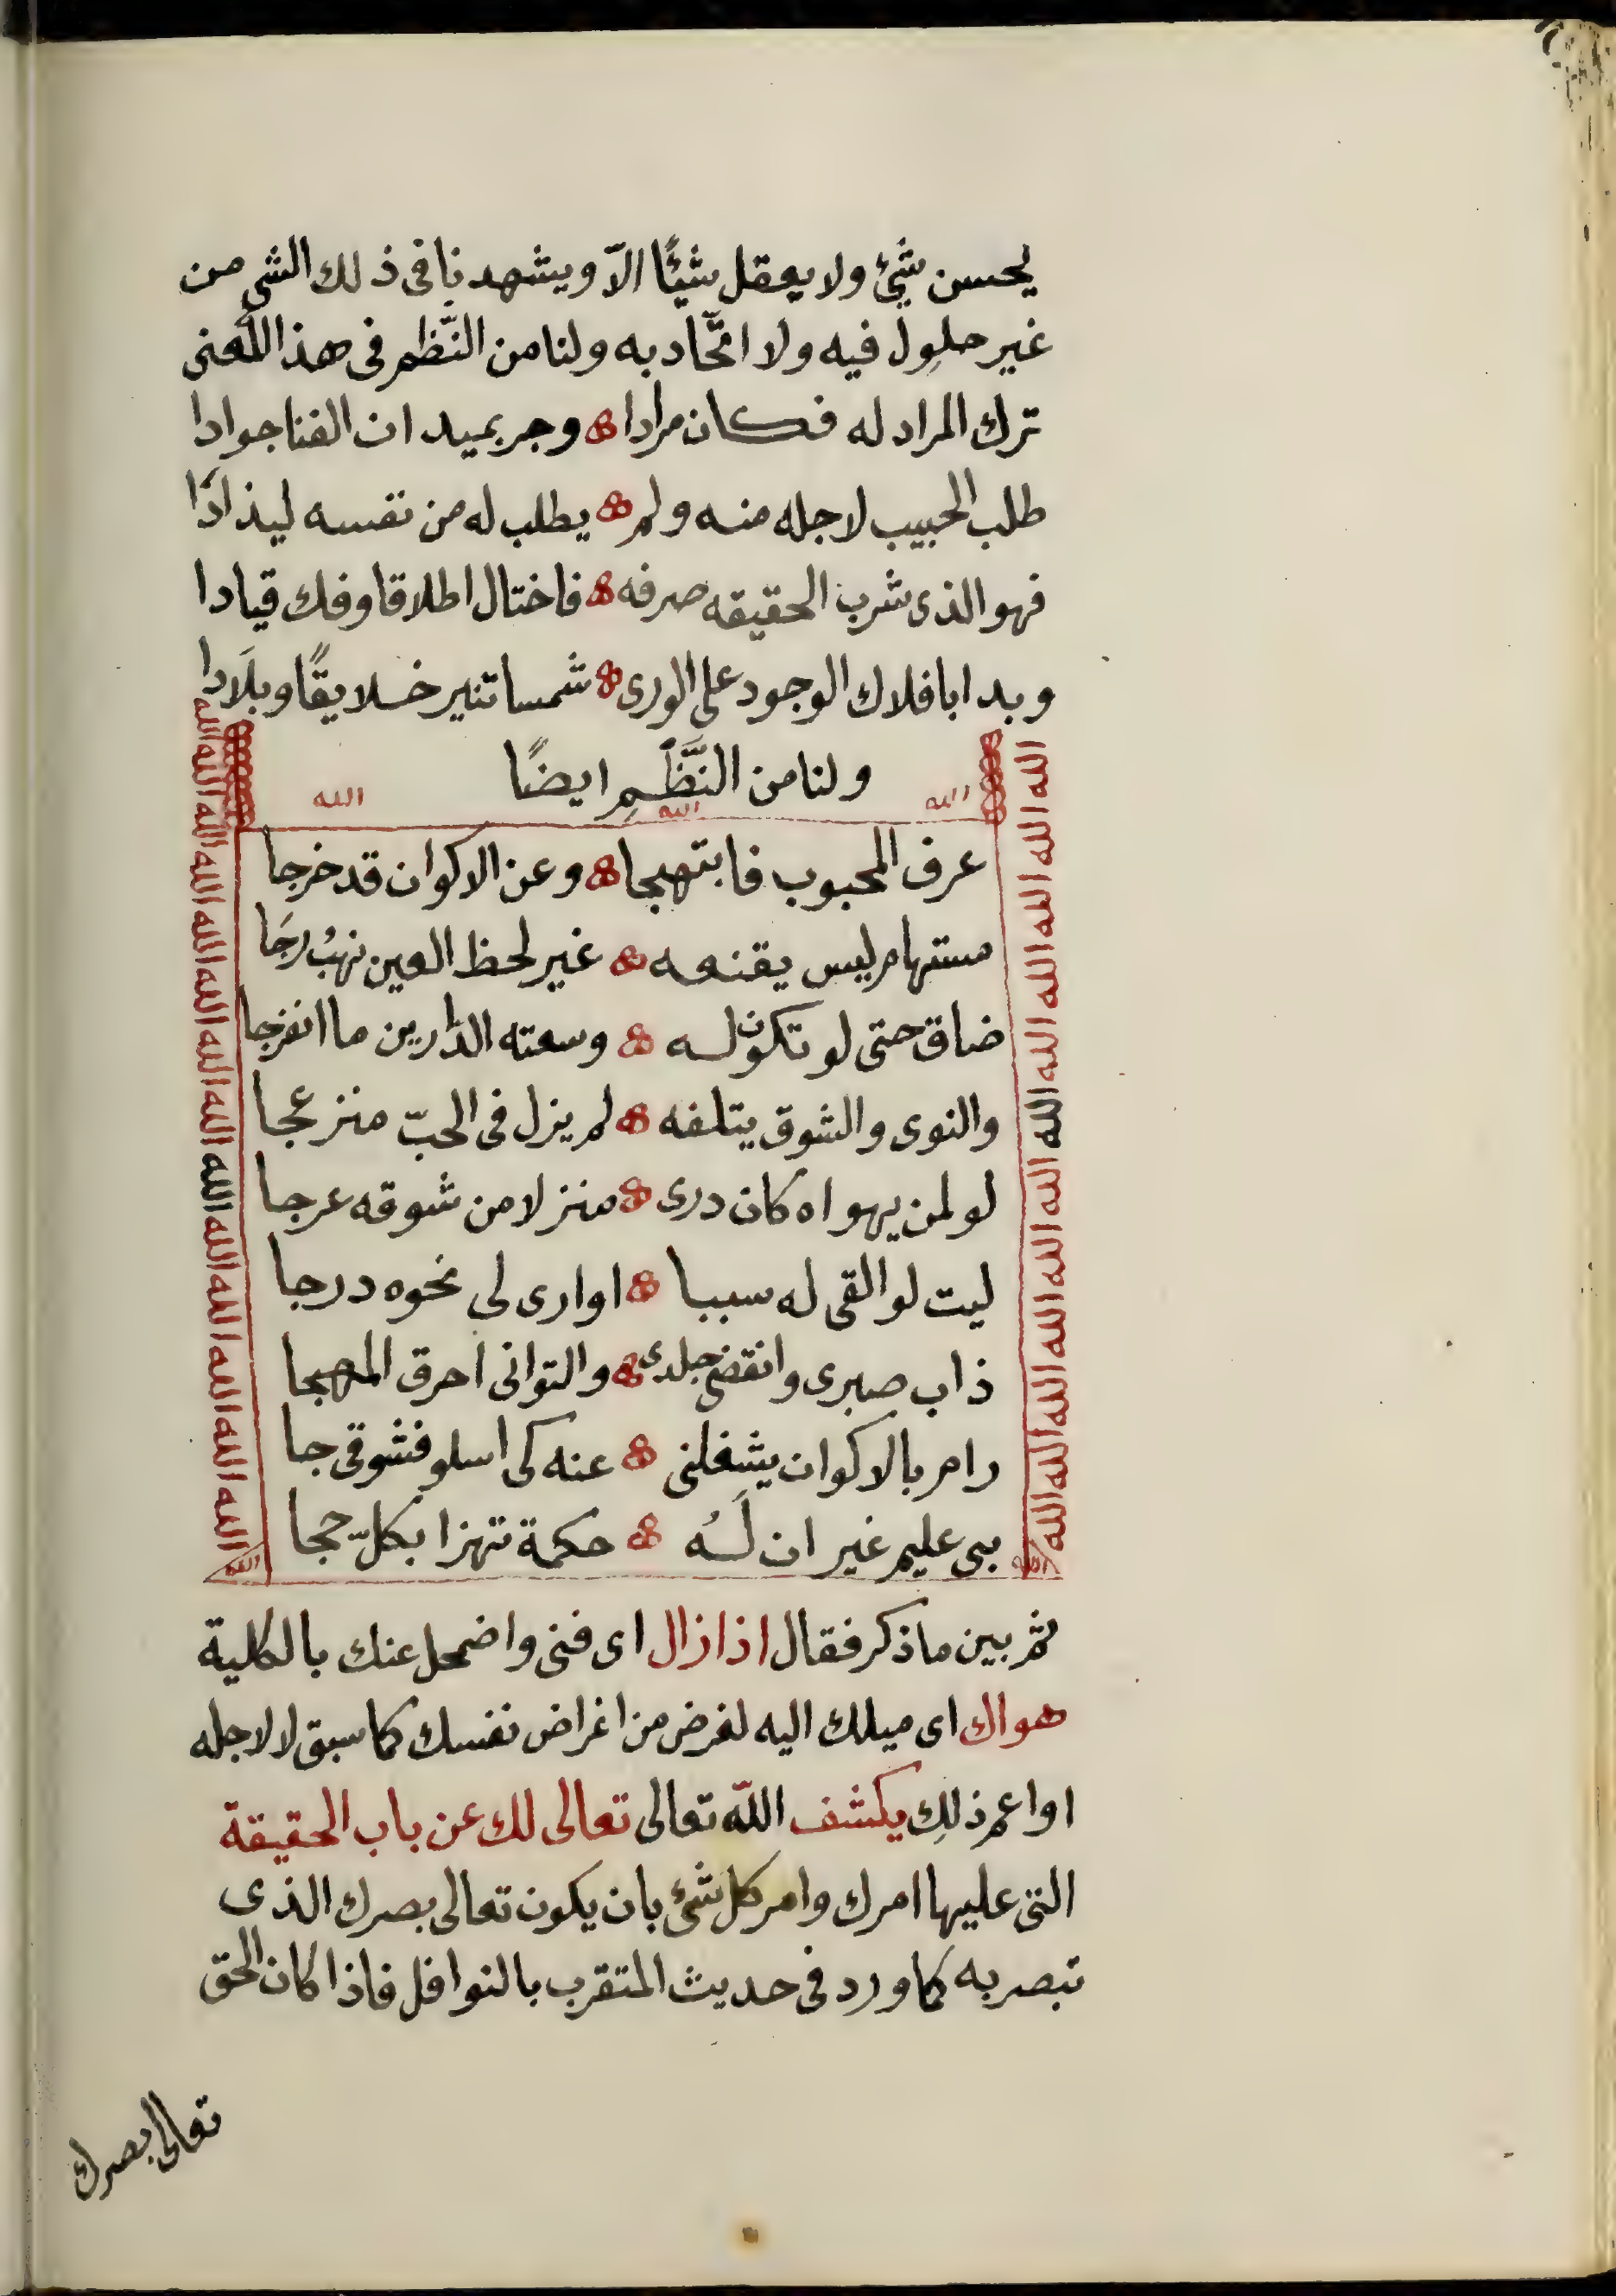 يحسن شئ ولا يعقل شيئًا الاّ ويشهدنا فى ذلك الشى من
غير حلول فيه ولا اتّحاد به ولنا من النّظم فى هذا المعنى
ترك المراد له فكان مرادا وجر بميدان الفنا جوادا
طلب الحبيب لاجله منه ولم يطلب له من نفسه ليذادا
فهو الذى شرب الحقيقه صرفه فاختال اطلاقا وفك قيادا
وبدا بافلاك الوجود على الورى شمسا تنير خلايقًا وبلادا
ولنا من النَّظمِ ايضًا
الله الله الله
عرف المحبوب فابتهجا وعن الاكوان قد خرجا
مستهام ليس يقنعه غير لحظ العين نهبُ رجَا
ضاق حتى لو تكون له وسعته الدّارين ما انفرجا
والنوى والشوق يتلفه لم يزل فى الحبّ منزعجا
لو لمن يهواه كان درى منزلا من شوقه عرجا
ليت لو القى له سببا او ارى لى نحوه درجا
ذاب صبرى وانقضى جلدى والتوانى احرق المهجا
رام بالاكوان يشغلنى عنه كى اسلو فشوقى جا
بى عليم غير ان لَهُ حكمة تهزا بكلّ حجا
ثم بين ما ذكر فقال اذا زال اى فنى واضمحل عنك بالكلية
هواك اى ميلك اليه لغرض من اغراض نفسك كما سبق لا لاجله
او اعم ذلِك يكشف اللّه تعالى تعالى لك عن باب الحقيقة
التى عليها امرك وامر كل شئ بان يكون تعالى بصرك الذى
تبصر به كما ورد فى حديث المتقرب بالنوافل فاذا كان الحق
تعالى بصرك